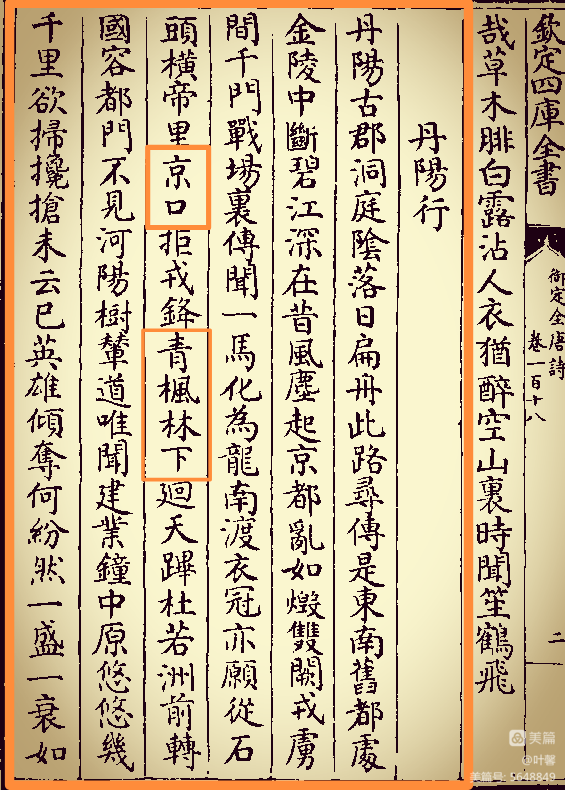 欽定四庫全書
御定全唐詩
卷一百十八
二
哉草木腓白露沾人衣猶醉空山裏時聞笙鶴飛
丹陽行
丹陽古郡洞庭陰落日扁舟此路尋傳是東南舊都處
金陵中斷碧江深在昔風塵起京都亂如燬雙闕戎虜
間千門戰場裏傳聞一馬化為龍南渡衣冠亦願從石
頭橫帝里京口拒戎鋒青楓林下迴天蹕杜若洲前轉
國容都門不見河陽樹輦道唯聞建業鐘中原悠悠幾
千里欲掃攙搶未云已英雄傾奪何紛然一盛一衰如
美篇
@叶馨
美篇号: 5648849